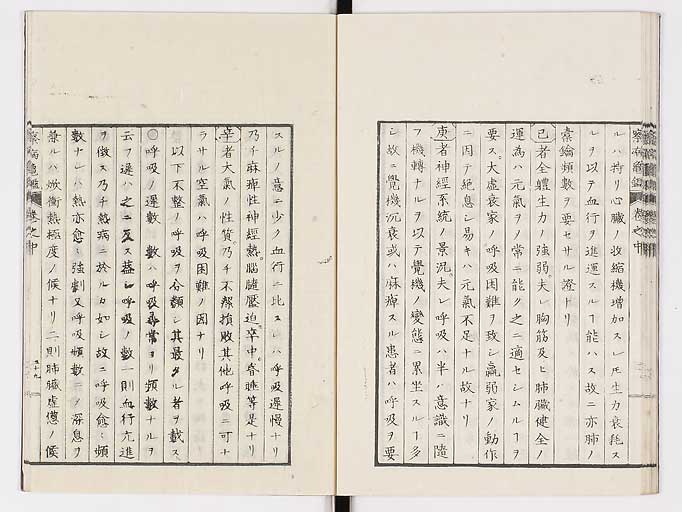 ルハ特リ心臓ノ收縮機増加スレ𪜈生力衰耗ス
ルヲ以テ血行ヲ進運スルヿ能ハス故ニ亦肺ノ
槖鑰頻數ヲ要セサル證トリ
己者全體生力ノ強弱夫レ胸筋及ヒ肺臓健全ノ
運為ハ元氣ヲノ常ニ能ク之ニ適セシムルヿヲ
要ス大虚衰家ノ呼吸困難ヲ致シ羸弱家ノ動作
ニ因テ絶息シ易キハ元氣不足ナル故ナリ
庚者神經系統ノ景況夫レ呼吸ハ半ハ意識ニ隨
フ機轉ナルヲ以テ覺機ノ變態ニ累坐スルヿ多
シ故ニ覺機沉衰或ハ麻痺スル患者ハ呼吸ヲ要
察病亀鑑 卷之中
スルノ意ニ少ク血行ニ比スレハ呼吸遲慢ナリ
乃チ麻痺性神經熱腦髓壓迫卒中昏睡等是ナリ
辛者大氣ノ性質乃チ不潔損敗其他呼吸ニ可ナ
ラサル空氣ハ呼吸困難ノ因ナリ
以下不整ノ呼吸ヲ分類シ其最タル者ヲ載ス
○呼吸ノ遲數 數ハ呼吸尋常ヨリ頻數ナルヲ
云フ遲ハ之ニ反ス蓋シ呼吸ノ數ハ則血行亢進
ヲ徴ス乃チ熱病ニ於ルカ如シ故ニ呼吸愈〻頻
數ナレハ熱亦愈〻強劇又呼吸頻數ニノ深息ヲ
兼ルハ焮衝熱極度ノ候ナリ二則肺臓虚憊ノ候
察病亀鑑 卷之中
五十九